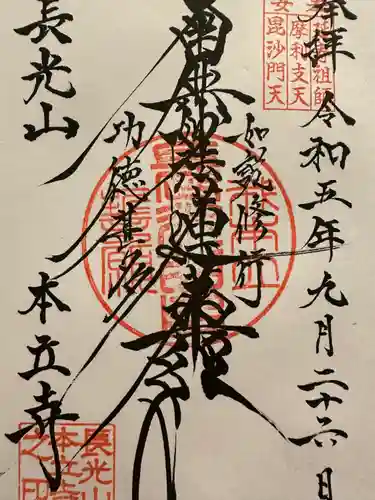 奉拝 令和五年九月二十六日
如説修行
南無妙法蓮華経
功徳甚多
長光山 本立寺
祖師
摩利支天
毘沙門天
長光山
本立寺
之印